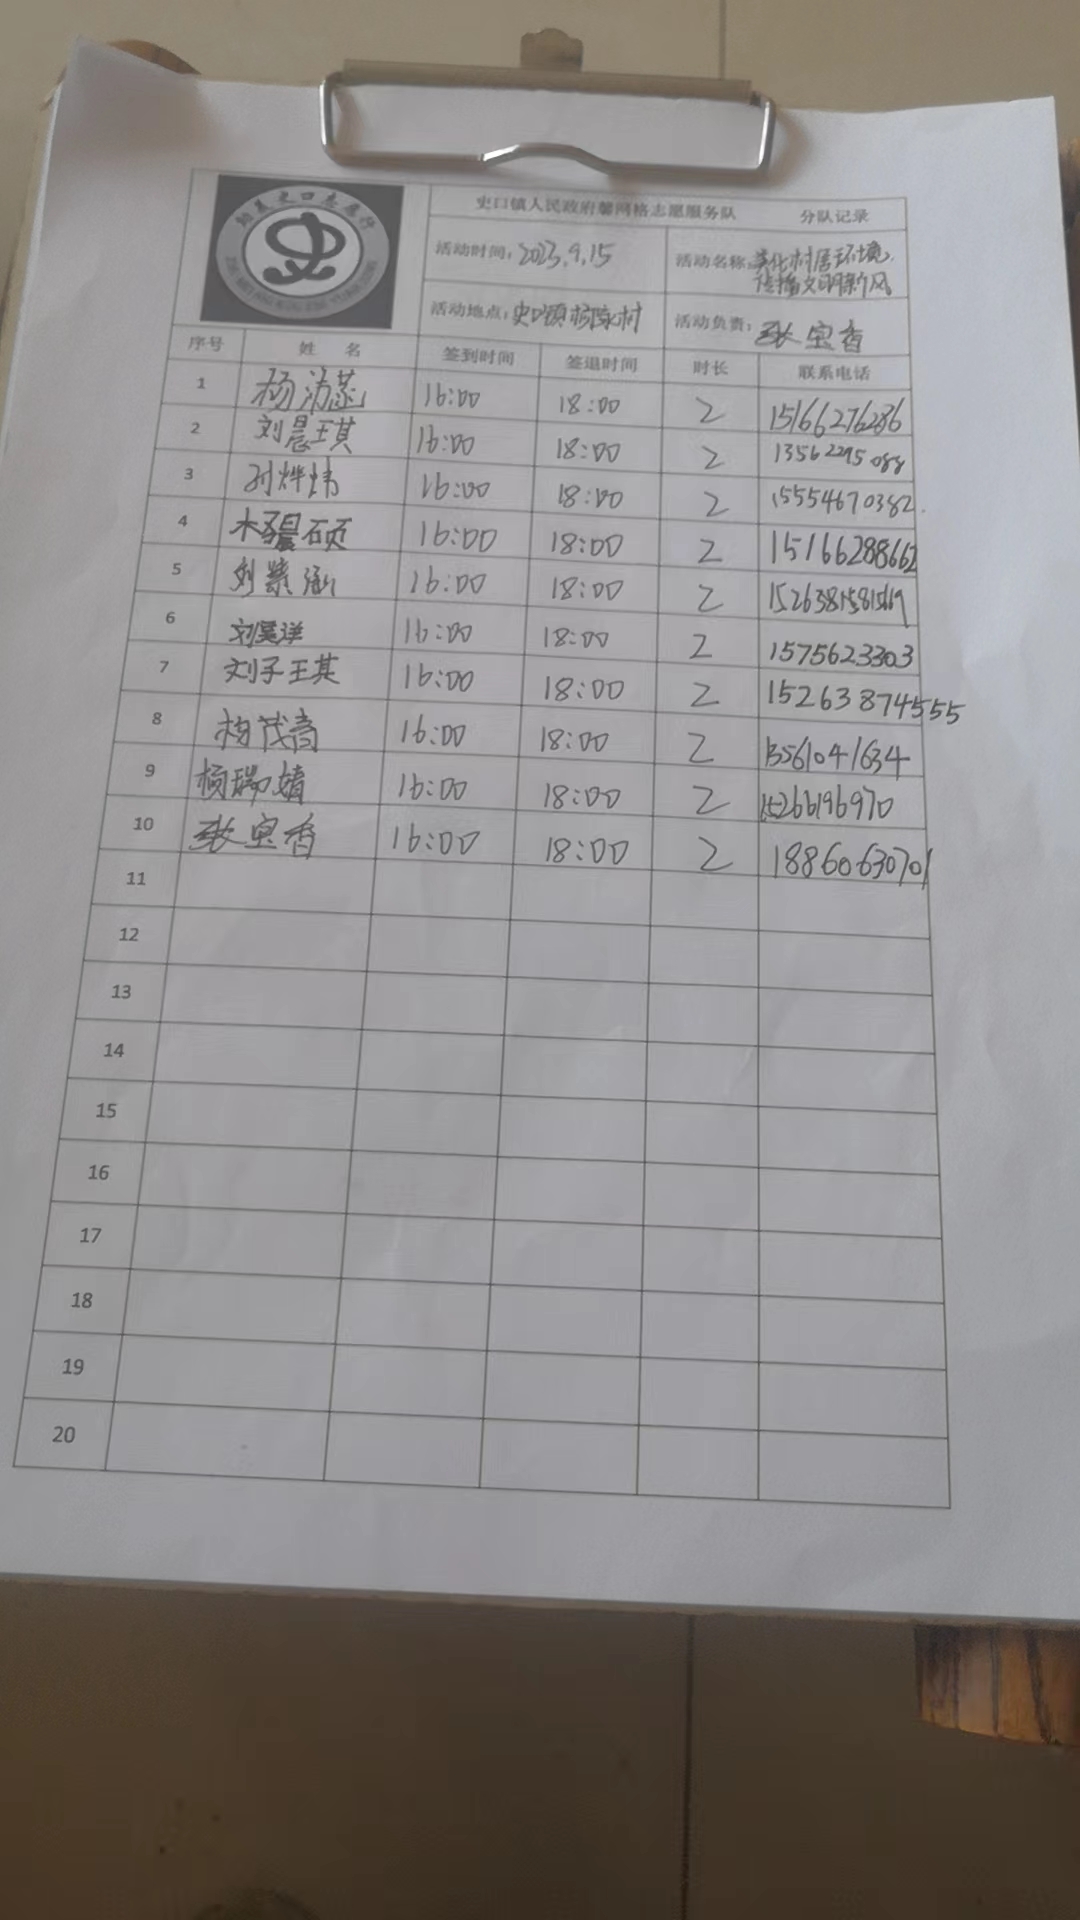 史口镇人民政府馨网格志愿服务队 分队记录
活动时间：2023.9.15 活动名称：美化村居环境，
传播文明新风
活动地点：史口镇杨家村 活动负责：张宝香
序号 姓 名 签到时间 签退时间 时长 联系电话
1 杨洁 16:00 18:00 2 15166276286
2 刘晨琪 16:00 18:00 2 13562295088
3 孙烨炜 16:00 18:00 2 15554670382
4 硕 16:00 18:00 2 15166288662
5 刘紫涵 16:00 18:00 2
6 刘昊洋 16:00 18:00 2 1575623303
7 刘子琪 16:00 18:00 2 15263874555
8 杨茂 16:00 18:00 2 13561041634
9 杨瑞婧 16:00 18:00 2 15266196970
10 张宝香 16:00 18:00 2 18860630701
11
12
13
14
15
16
17
18
19
20